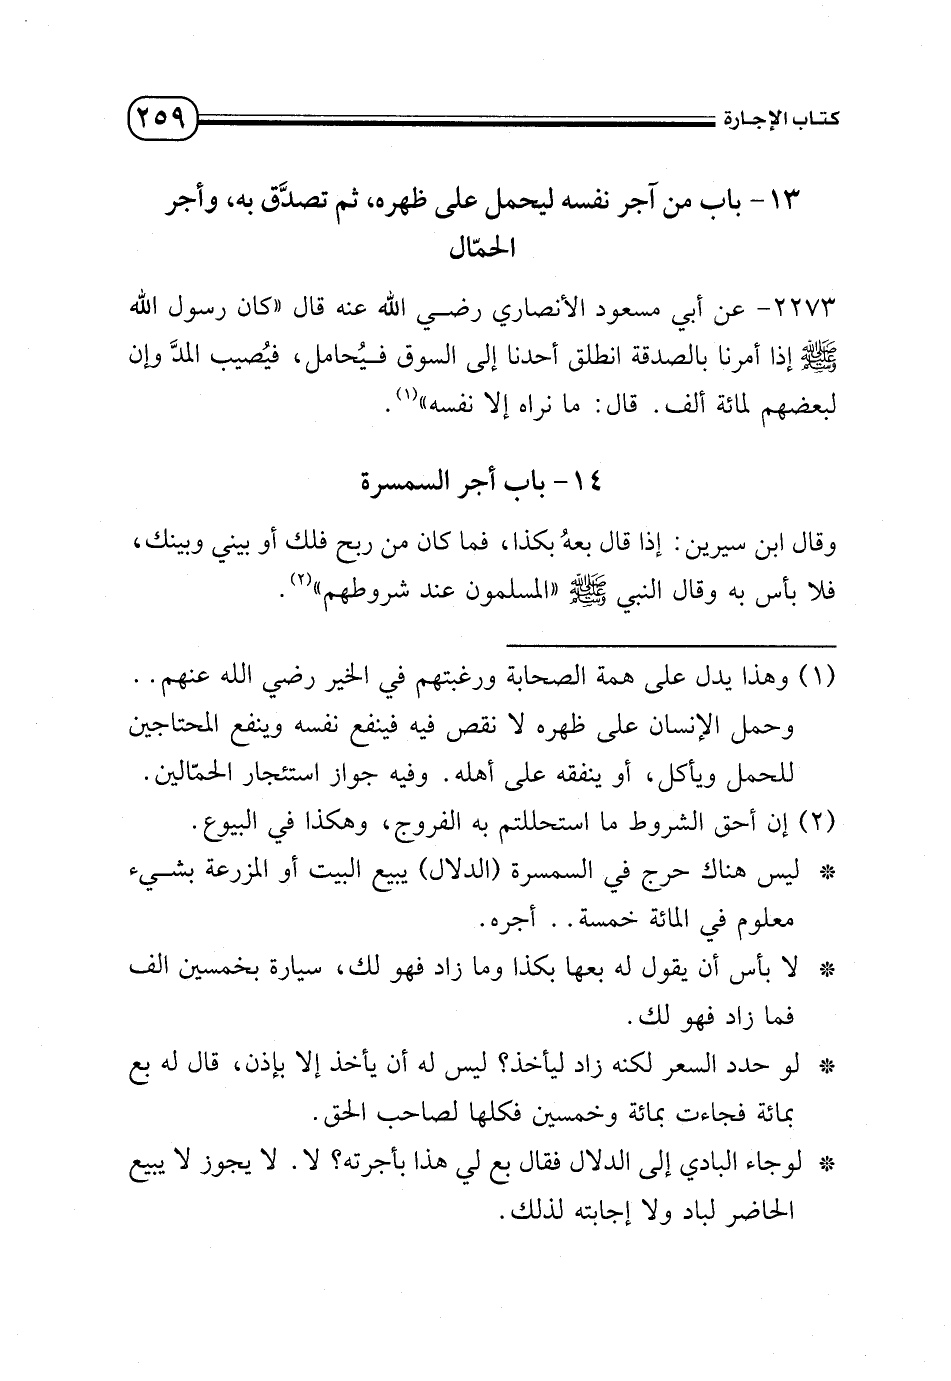 كتاب الإجارة ٢٥٩
١٣- باب من آجر نفسه ليحمل على ظهره، ثم تصدَّق به، وأجر
الحمّال
٢٢٧٣- عن أبي مسعود الأنصاري رضي الله عنه قال «كان رسول الله
ﷺ إذا أمرنا بالصدقة انطلق أحدنا إلى السوق فيُحامل، فيُصيب المدَّ وإن
لبعضهم لمائة ألف. قال: ما نراه إلا نفسه»(١).
١٤- باب أجر السمسرة
وقال ابن سيرين: إذا قال بعهُ بكذا، فما كان من ربح فلك أو بيني وبينك،
فلا بأس به وقال النبي ﷺ «المسلمون عند شروطهم»(٢).
(١) وهذا يدل على همة الصحابة ورغبتهم في الخير رضي الله عنهم..
وحمل الإنسان على ظهره لا نقص فيه فينفع نفسه وينفع المحتاجين
للحمل ويأكل، أو ينفقه على أهله. وفيه جواز استئجار الحمّالين.
(٢) إن أحق الشروط ما استحللتم به الفروج، وهكذا في البيوع.
* ليس هناك حرج في السمسرة (الدلال) يبيع البيت أو المزرعة بشيء
معلوم في المائة خمسة.. أجره.
* لا بأس أن يقول له بعها بكذا وما زاد فهو لك، سيارة بخمسين الف
فما زاد فهو لك.
* لو حدد السعر لكنه زاد ليأخذ؟ ليس له أن يأخذ إلا بإذن، قال له بع
بمائة فجاءت بمائة وخمسين فكلها لصاحب الحق.
* لوجاء البادي إلى الدلال فقال بع لي هذا بأجرته؟ لا. لا يجوز لا يبيع
الحاضر لباد ولا إجابته لذلك.